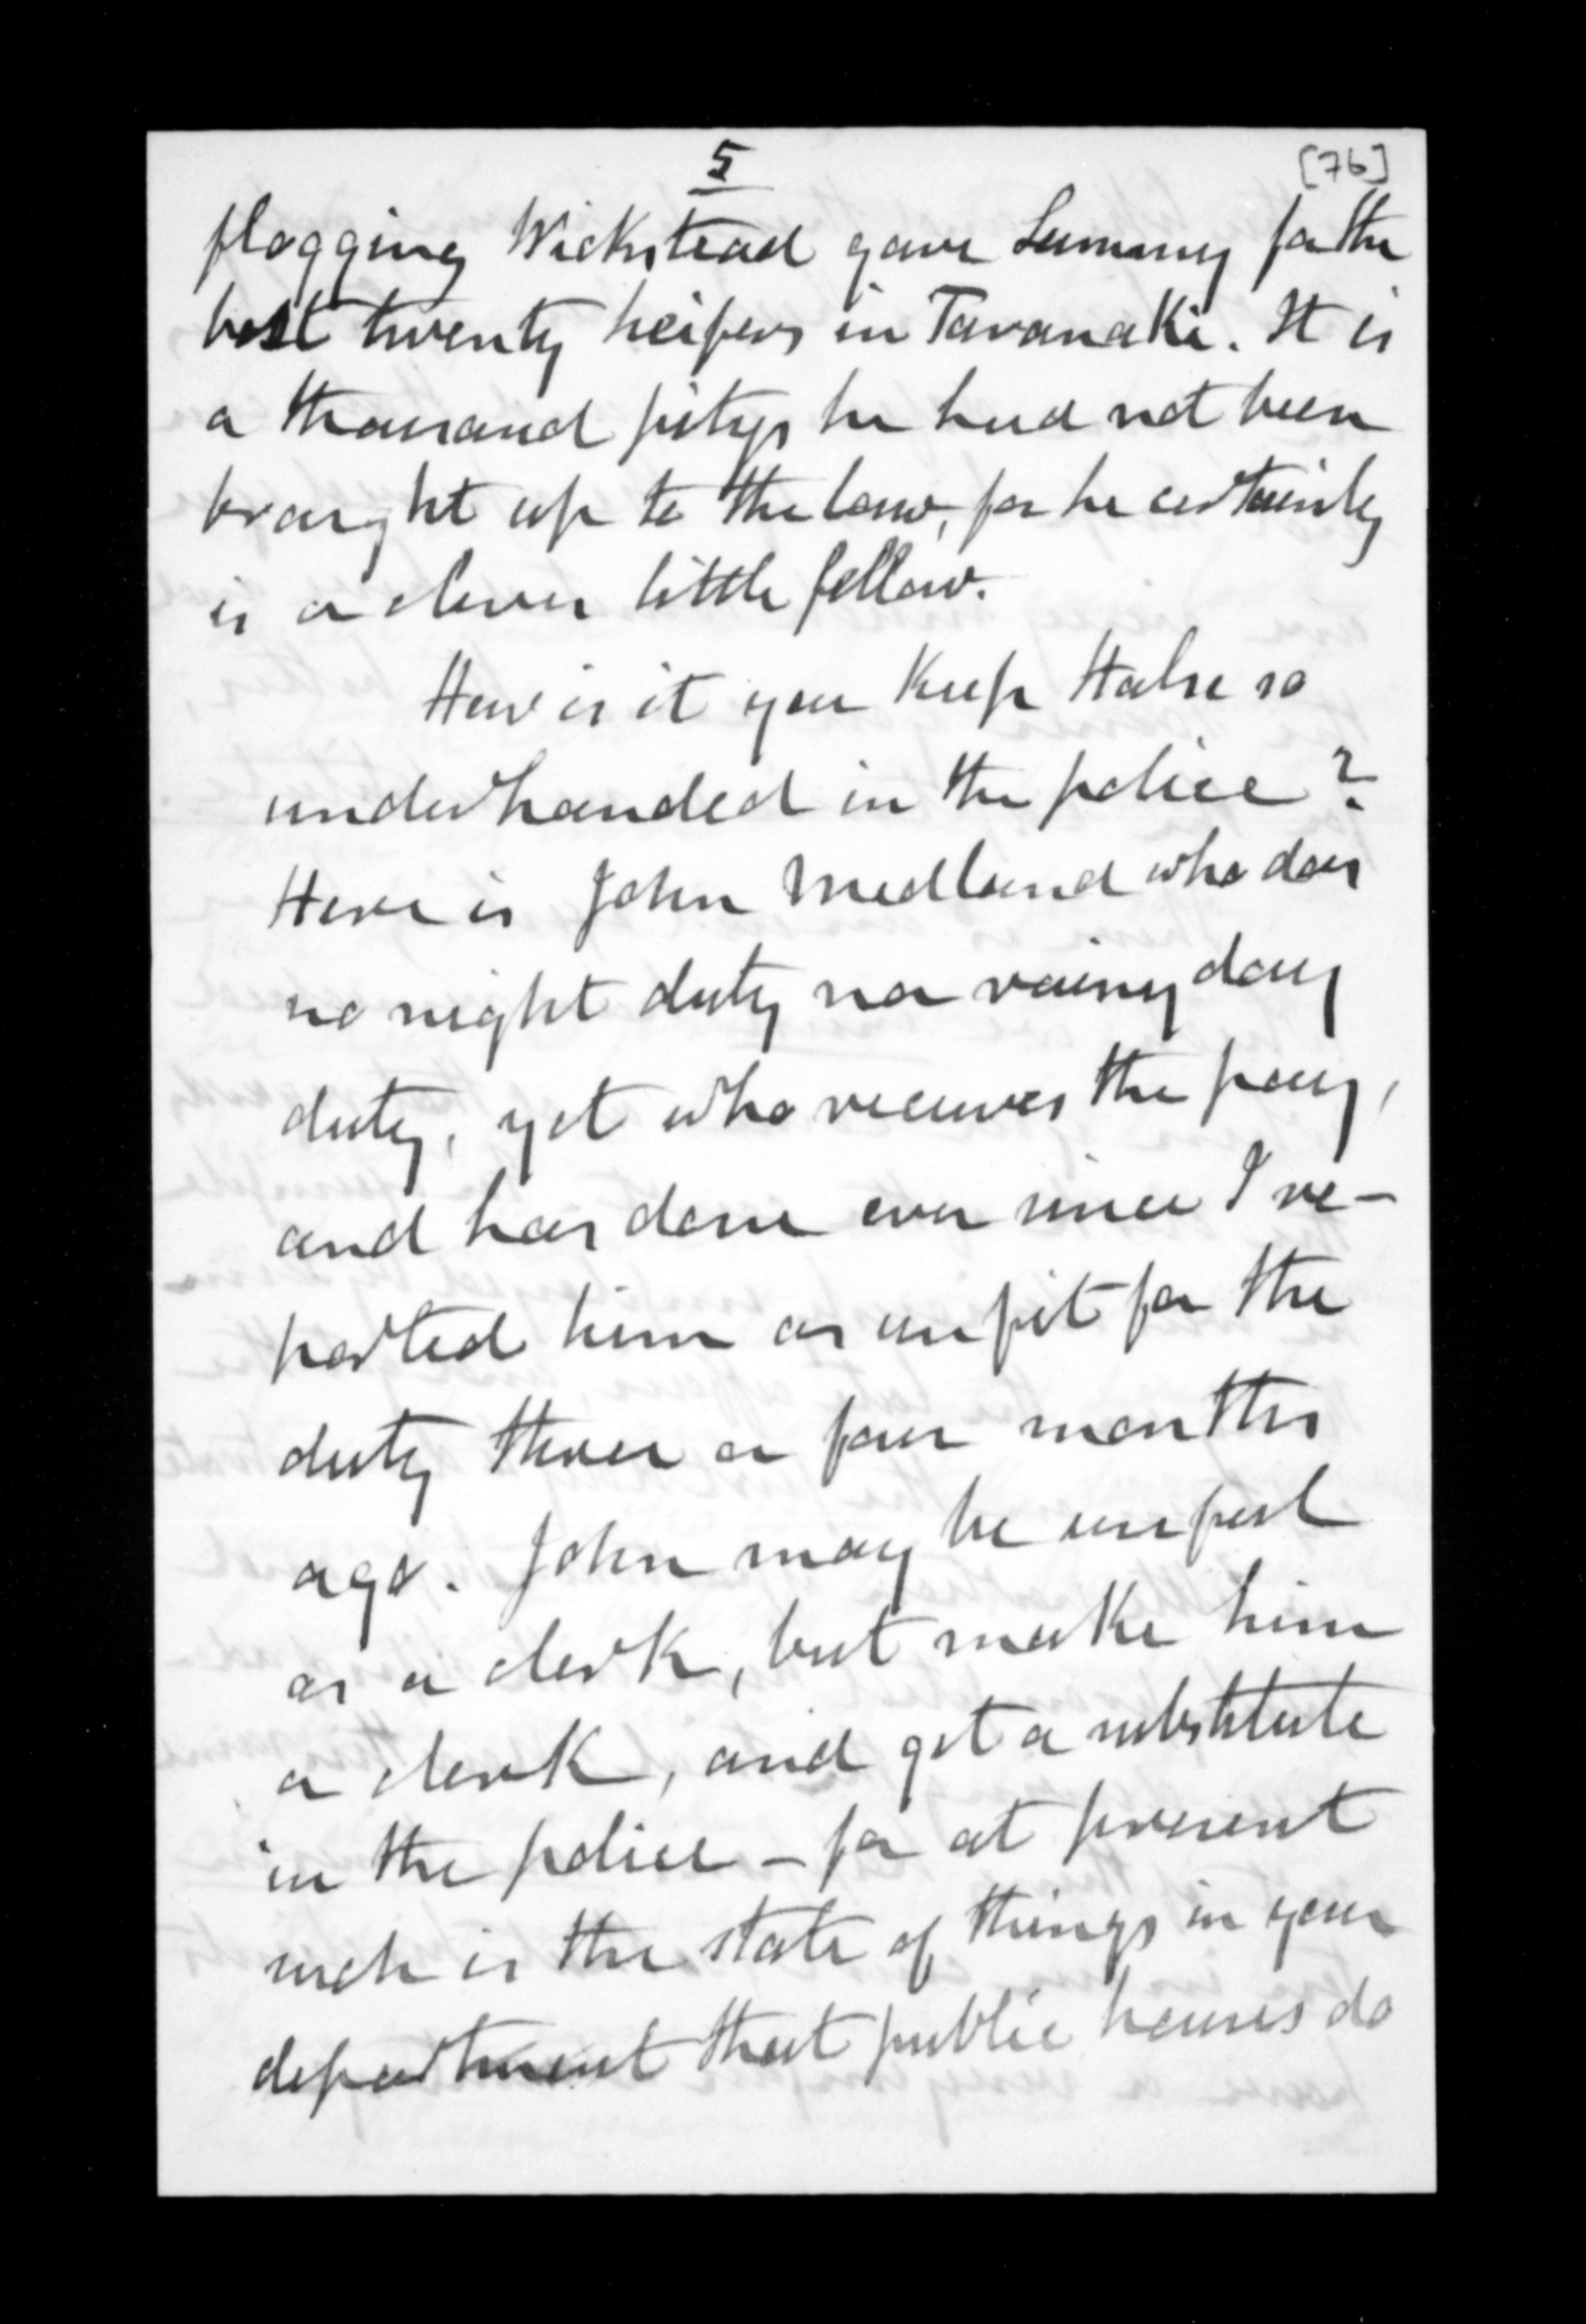 5
[76]
flogging Wickstead gave Lummy for the
best twenty heifers in Taranaki. It is
a thousand pitys he had not been
brought up to the law, for he certainly
is a clever little fellow.
How is it you keep Halse so
underhanded in the police?
Here is John Medland who does
no night duty nor rainy day
duty, yet who receives the pay,
and has done ever since I re-
ported him as unfit for the
duty three or four months
ago. John may be useful
as a clerk, but make him
a clerk, and get a substitute
in the police - for at present
such is the state of things in your
department that public houses do